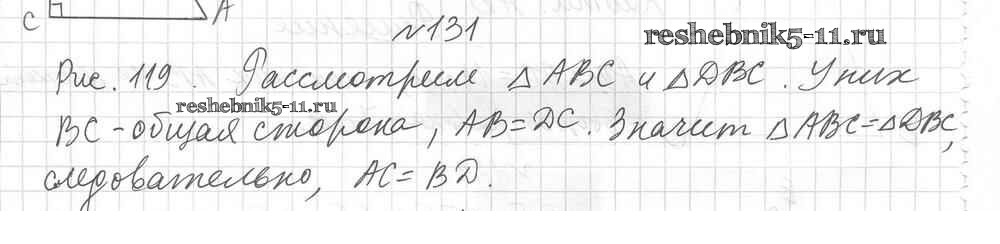 C A
№131
reshebnik5-11.ru
Рис. 119. Рассмотрим △ABC и △DBC. У них
reshebnik5-11.ru
BC - общая сторона, AB=DC. Значит △ABC=△DBC,
следовательно, AC=BD.